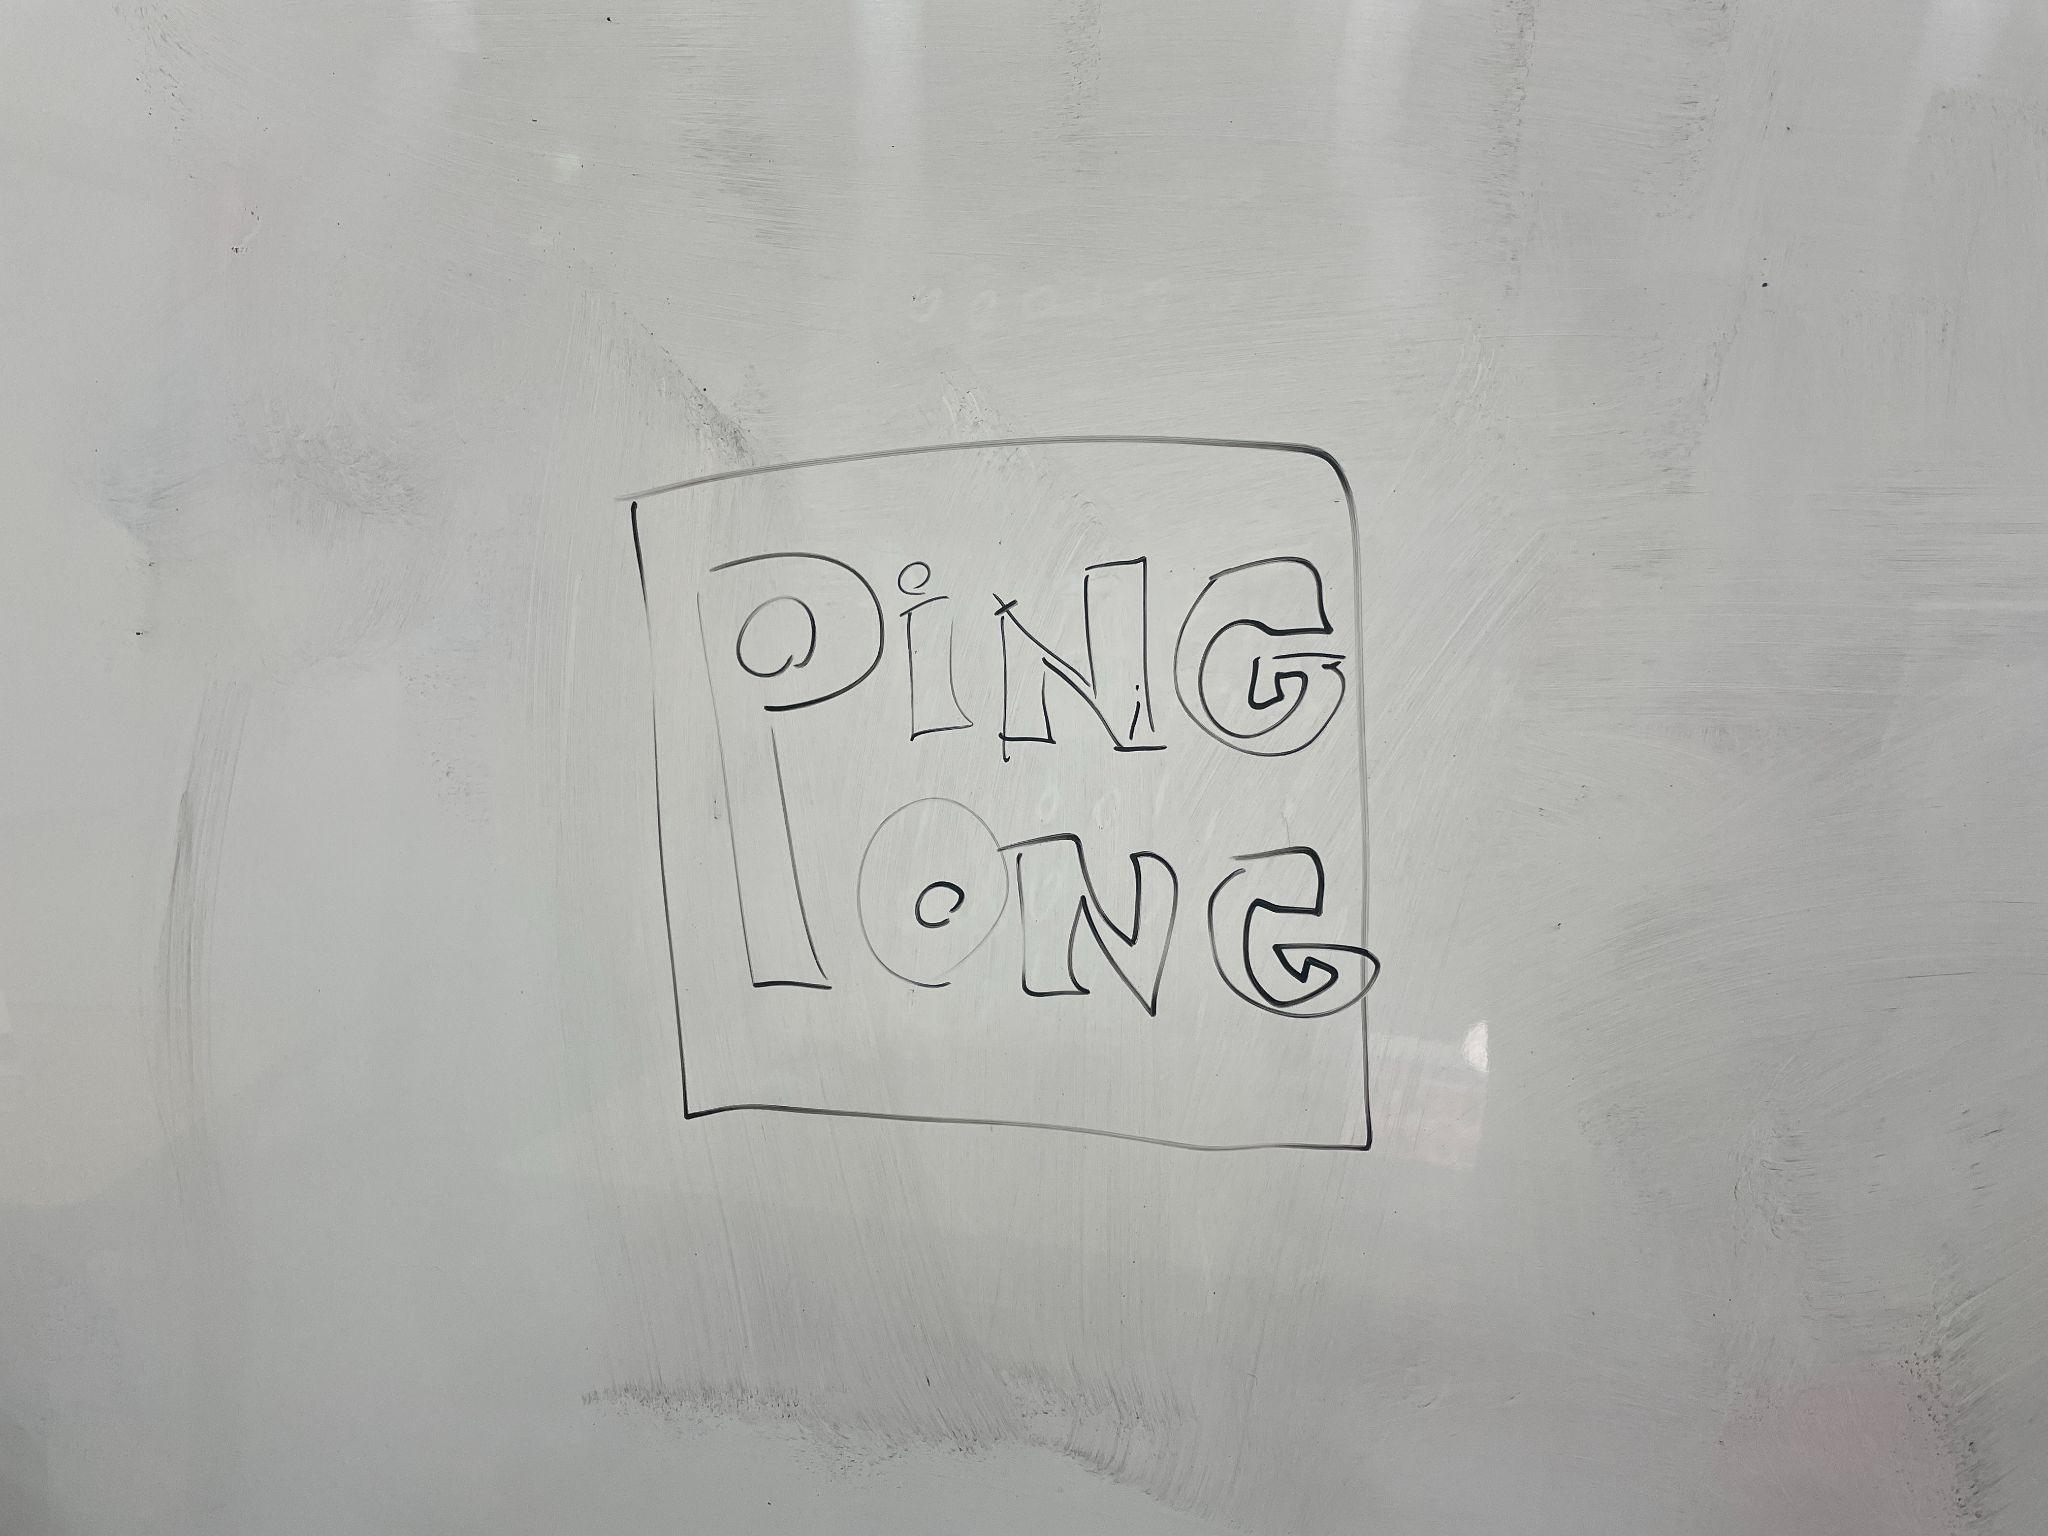 PiNG
ONG